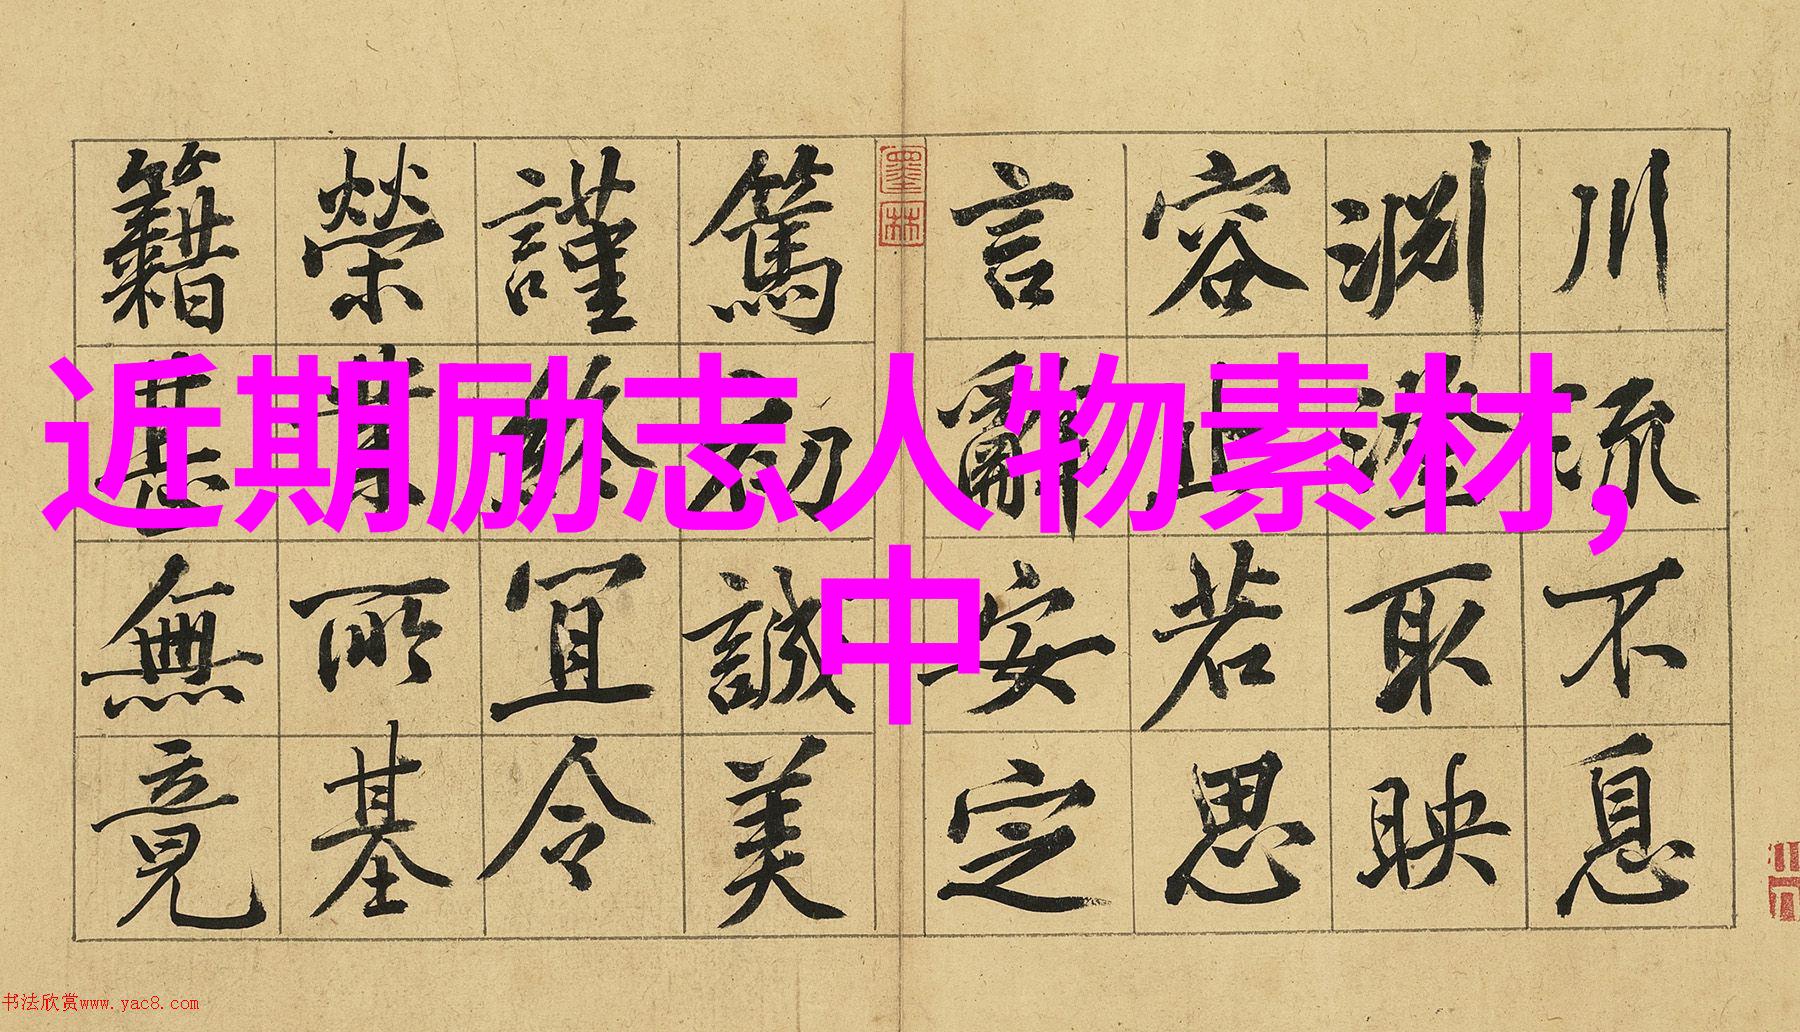 川流不息
淵澄取映
容止若思
言辭安定
墨林
篤初誠美
謹終宜令
榮業所基
籍甚無竟
近期励志人物素材,
中
书法欣赏www.yac8.com